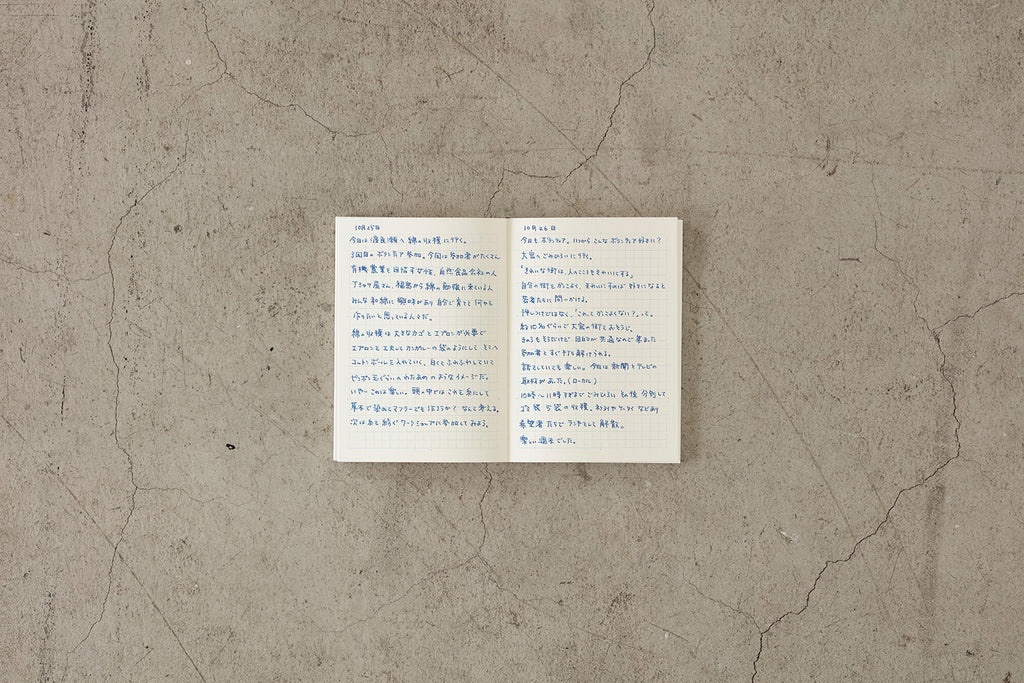 10月25日
今日は渡良瀬へ綿の収穫に行く。
3回目のボランティア参加。今回は参加者がたくさん
有機農業を目指す女性、自然食品会社の人
屋さん、福島から綿の勉強に来ている人
みんな和綿に興味があり自分で育てて何かを
作りたいと思っているんだ。
綿の収穫は大きなカゴとエプロンが必要で
エプロンを工夫してカンガルーの袋のようにして そこへ
コットンボールを入れていく。白くてふわふわしていて
ピンポン玉ぐらいの わたあめのようなイメージだ。
いやーこれは楽しい。頭の中ではこれを糸にして
草木で染めてマフラーでも なんて考える。
次は糸を紡ぐワークショップに参加してみよう。
10月26日
今日もボランティア。いつからこんなボランティア好きに?
大宮へごみひろいに行く。
「きれいな街は、人のこころもきれいにする」
自分の街をかっこよく、きれいにすれば 好きになると
若者たちに問いかける。
押しつけではなく、「これってかっこよくない?」って。
約10名ぐらいで大宮の街をおそうじ。
きのうもそうだけど 目的が共通なので集まった
参加者とすぐ打ち解けられる。
話をしていても楽しい。今日は新聞とテレビの
取材があった。(ローカル)
10時〜11時すぎまでごみひろい その後 分別して
ゴミ袋 5袋の収穫。 など
希望者たちでランチをして解散。
楽しい週末でした。